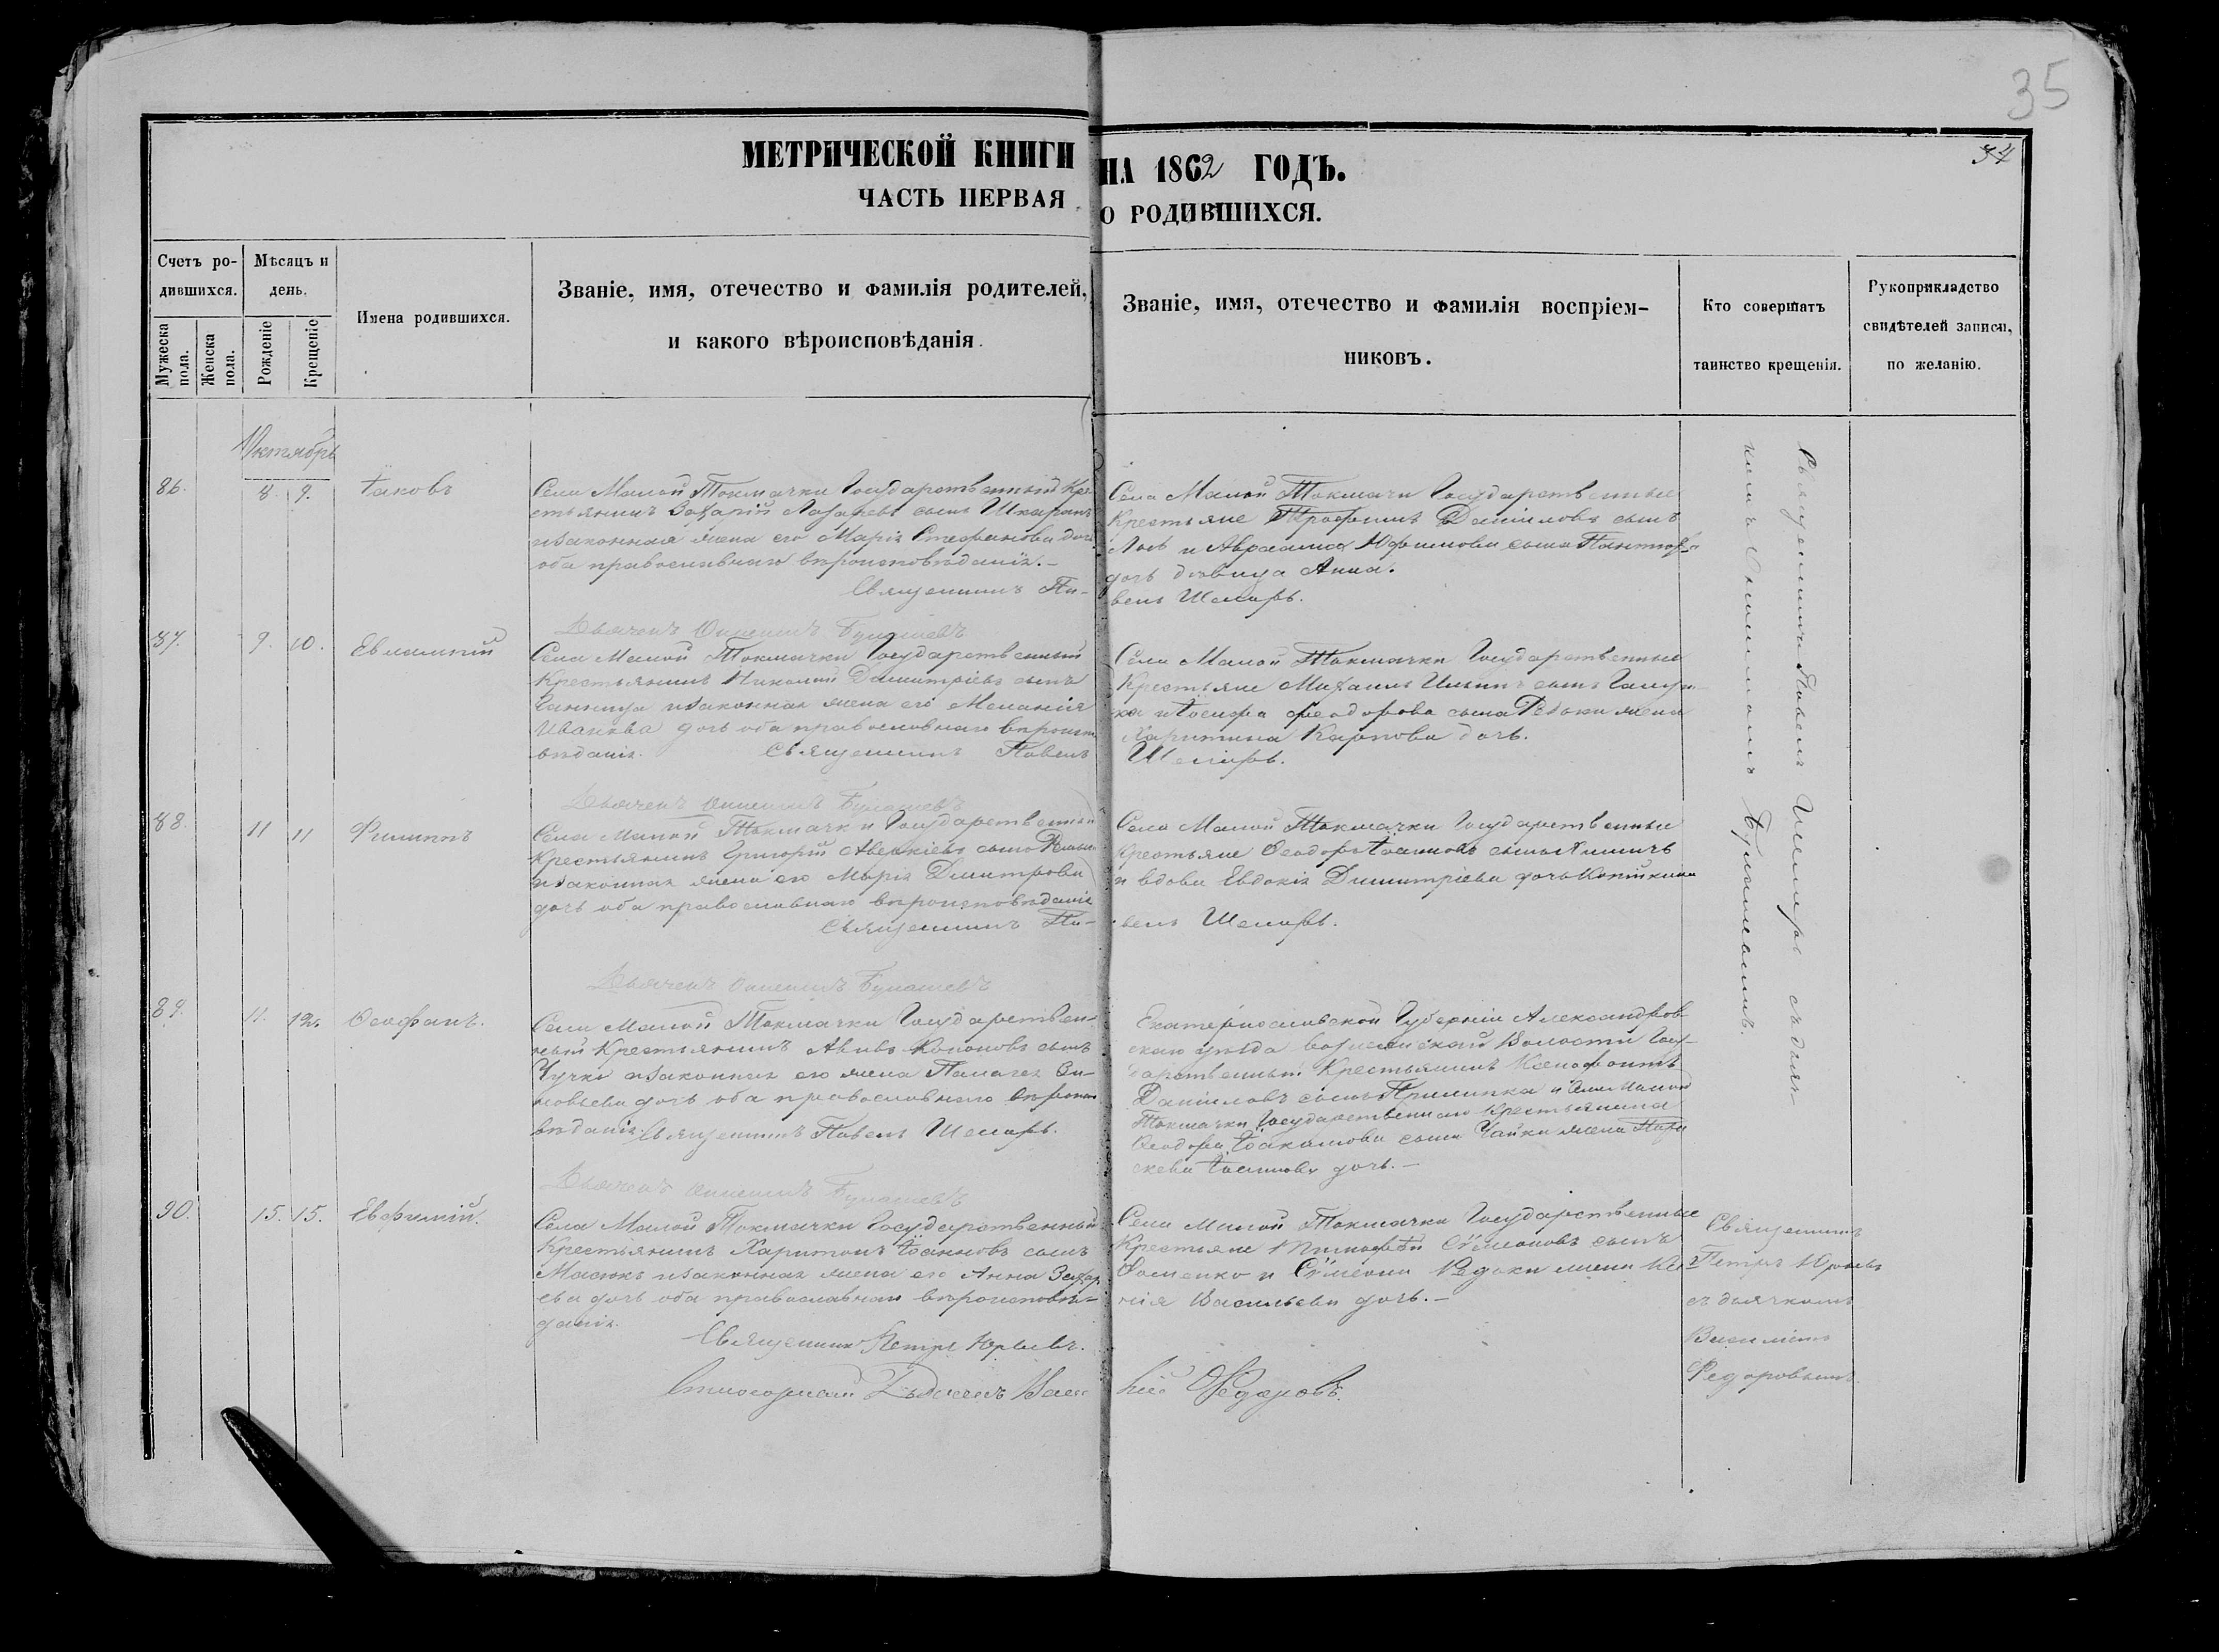 35
34
МЕТРИЧЕСКОЙ КНИГИ НА 1862 ГОДЪ.
ЧАСТЬ ПЕРВАЯ О РОДИВШИХСЯ.
Счетъ ро-
дившихся.
Мужеска
пола.
Женска
пола.
Мѣсяцъ и
день.
Рожденіе
Крещеніе
Имена родившихся.
Званіе, имя, отечество и фамилія родителей,
и какого вѣроисповѣданія.
Званіе, имя, отечество и фамилія воспріем-
никовъ.
Кто совершатъ
таинство крещенія.
Рукоприкладство
свидѣтелей записи,
по желанію.
Октябрь
86. 8 9. Іаковъ
Села Малой Токмачки Государственный Кре-
стьянинъ Захарій Лазаревъ сынъ
и законная жена его Марія Стефанова доч
оба православнаго вѣроисповѣданія.-
Священникъ Па-
Дьячекъ
Села Малой Токмачи Государственные
Крестьяне Трофимъ Даніиловъ сынъ
Лось и Авраама Юфимова сына
дочь дѣвица Анна.
велъ
Священникъ Павелъ съ дьяч-
комъ
87. 9. 10. Евлампій
Села Малой Токмачки Государственный
Крестьянинъ Николай Димитріевъ сынъ
и законная жена его Меланія
Иванова дочь оба православнаго вѣроиспо
вѣданія. Священникъ Павелъ
Дьячекъ
Села Малой Токмачки Государственные
Крестьяне Михаилъ Ильинъ сынъ
ха и Іосифа Феодорова сына Редьки жена
Харитина Карпова дочь.
88. 11 11 Филиппъ
Села Малой Токмачки Государственный
Крестьянинъ Григорій Аверкіевъ сынъ
и законная жена его Марія Димитрова
дочь оба православнаго вѣроисповѣданія
Священникъ Па-
Дьячекъ
Села Малой Токмачки Государственные
Крестьяне Ѳеодоръ Іоанновъ сынъ
и вдова Евдокія Димитріева дочь
велъ
89. 11. 12. Ѳеофанъ.
Села Малой Токмачки Государствен-
ный Крестьянинъ Авивъ Кононовъ сынъ
Чучко и законная его жена Палагея Зи-
новьева дочь оба православнаго вѣроиспо
вѣданія. Священникъ Павелъ
Дьячекъ
Екатеринославской Губерніи Александров-
скаго уѣзда Волости Госу-
дарственный Крестьянинъ Ксенофонтъ
Даніиловъ сынъ Прилипка и села Малой
Токмачки Государственнаго Крестьянина
Ѳеодора Іоакимова сына Чайки жена Пара
скева Іоаннова дочь.-
90. 15. 15. Евфимій.
Села Малой Токмачки Государственный
Крестьянинъ Харитонъ Іоанновъ сынъ
Масюкъ и законная жена его Анна Захар
ева дочь оба православнаго вѣроисповѣ-
данія.
Священникъ Петръ Юрьевъ.
Дьячекъ Васи
Села Малой Токмачки Государственные
Крестьяне Тимофей Сѵмеоновъ сынъ
Фоменко и Сѵмеона Редьки жена Ксе
нія Васильева дочь.-
лій Федоровъ.
Священникъ
Петръ Юрьевъ
съ дьячкомъ
Василіемъ
Федоровымъ